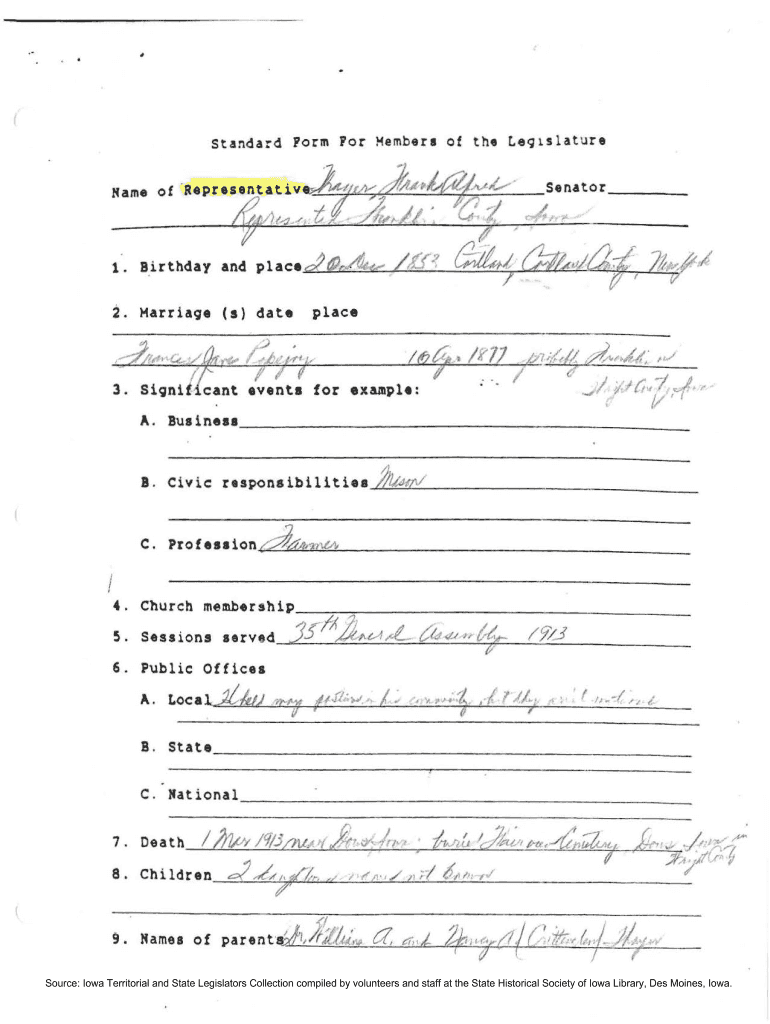 Standard Form For Members of the Legislature
Name of Representative Thayer, Frank Alfred Senator
Represented Franklin County, Iowa
1. Birthday and place 20 Dec 1853 Cortland, Cortland County, New York
2. Marriage (s) date place
Frances Jane Pepejoy 10 Apr 1877 probably Franklin or
Wright County, Iowa
3. Significant events for example:
A. Business
B. Civic responsibilities Mason
C. Profession Farmer
4. Church membership
5. Sessions served 35th General Assembly 1913
6. Public Offices
A. Local Held many positions in his community, but they
B. State
C. National
7. Death 1 Mar 1913 near Dows, Iowa; buried Fairview Cemetery, Dows, Iowa in
Wright County
8. Children 2 daughters names not known
9. Names of parents Dr. William A. and Nancy A. Thayer
Source: Iowa Territorial and State Legislators Collection compiled by volunteers and staff at the State Historical Society of Iowa Library, Des Moines, Iowa.